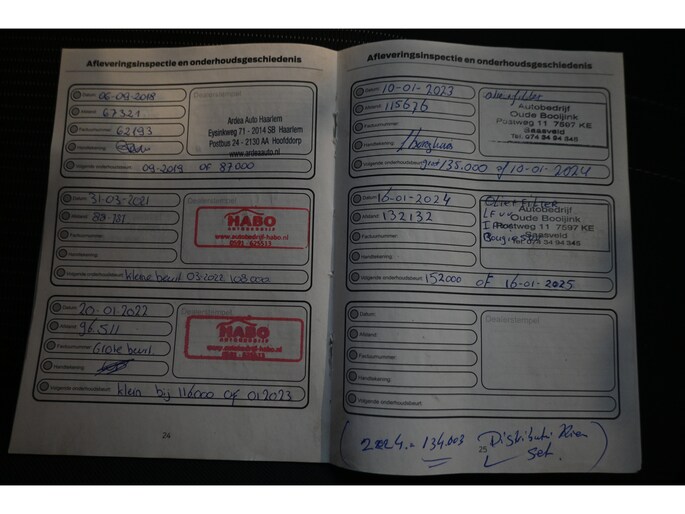 Afleveringsinspectie en onderhoudsgeschiedenis
Datum: 06-09-2018
Afstand: 67321
Factuurnummer: 62193
Handtekening:
Volgende onderhoudsbeurt: 09-2019 OF 87000
Dealerstempel
Ardea Auto Haarlem
Eysinkweg 71 - 2014 SB Haarlem
Postbus 24 - 2130 AA Hoofddorp
www.ardeaauto.nl
Datum: 31-03-2021
Afstand:
Factuurnummer:
Handtekening:
Volgende onderhoudsbeurt: kleine beurt 03-2022 108.000
Dealerstempel
HABO
AUTOBEDRIJF
www.autobedrijf-habo.nl
0591 - 625513
Datum: 20-01-2022
Afstand: 96511
Factuurnummer: Grote beurt
Handtekening:
Volgende onderhoudsbeurt: klein bij 116000 OF 01.2023
Dealerstempel
HABO
AUTOBEDRIJF
www.autobedrijf-habo.nl
24
Afleveringsinspectie en onderhoudsgeschiedenis
Datum: 10-01-2023
Afstand: 115676
Factuurnummer:
Handtekening:
Volgende onderhoudsbeurt: 135.000 of 10-01-2024
oliefilter
Autobedrijf
Oude Booijink
Postweg 11 7597 KE
Saasveld
Tel. 074 34 94 345
Datum: 16-01-2024
Afstand: 132132
Factuurnummer:
Handtekening:
Volgende onderhoudsbeurt: 152000 OF 16-01-2025
Oliefilter
Autobedrijf
Oude Booijink
Postweg 11 7597 KE
Saasveld
Tel. 074 34 94 345
Datum:
Afstand:
Factuurnummer:
Handtekening:
Volgende onderhoudsbeurt:
Dealerstempel
25
(2024 - 134.003 Distributie Riem
set.)